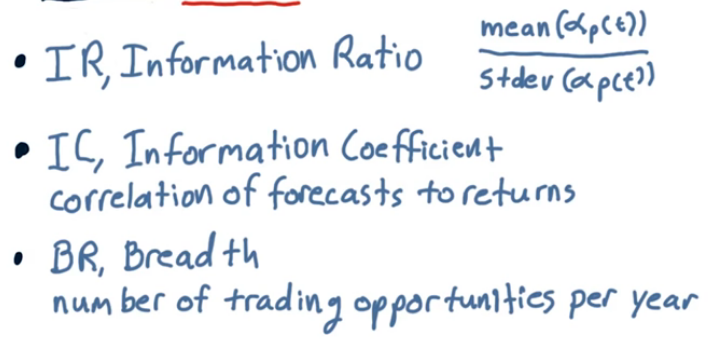 • IR, Information Ratio mean(αp(t))
stdev(αp(t))
• IC, Information Coefficient
correlation of forecasts to returns
• BR, Breadth
number of trading opportunities per year